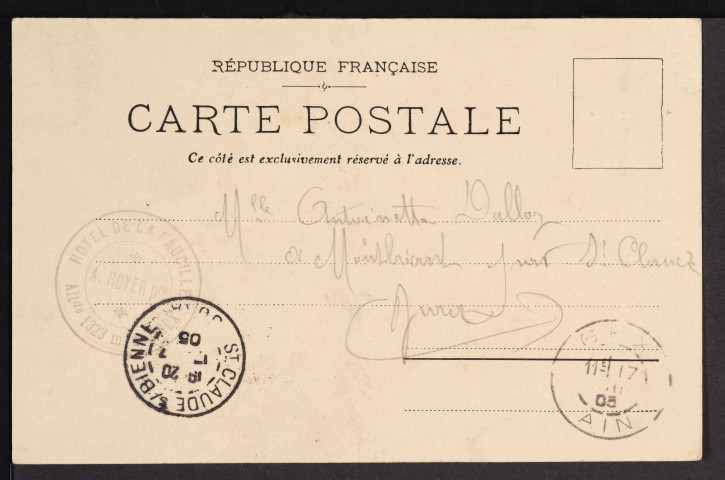 RÉPUBLIQUE FRANÇAISE
CARTE POSTALE
Ce côté est exclusivement réservé à l'adresse.
Mlle Antoinette Dalloz
à sur St Claude
Jura
HOTEL DE LA FAUCILLE
A. ROYER
Altde 1323 m
ST. CLAUDE S/BIENNE
18 20
17 7
05
JURA
G
11E 17
05
AIN